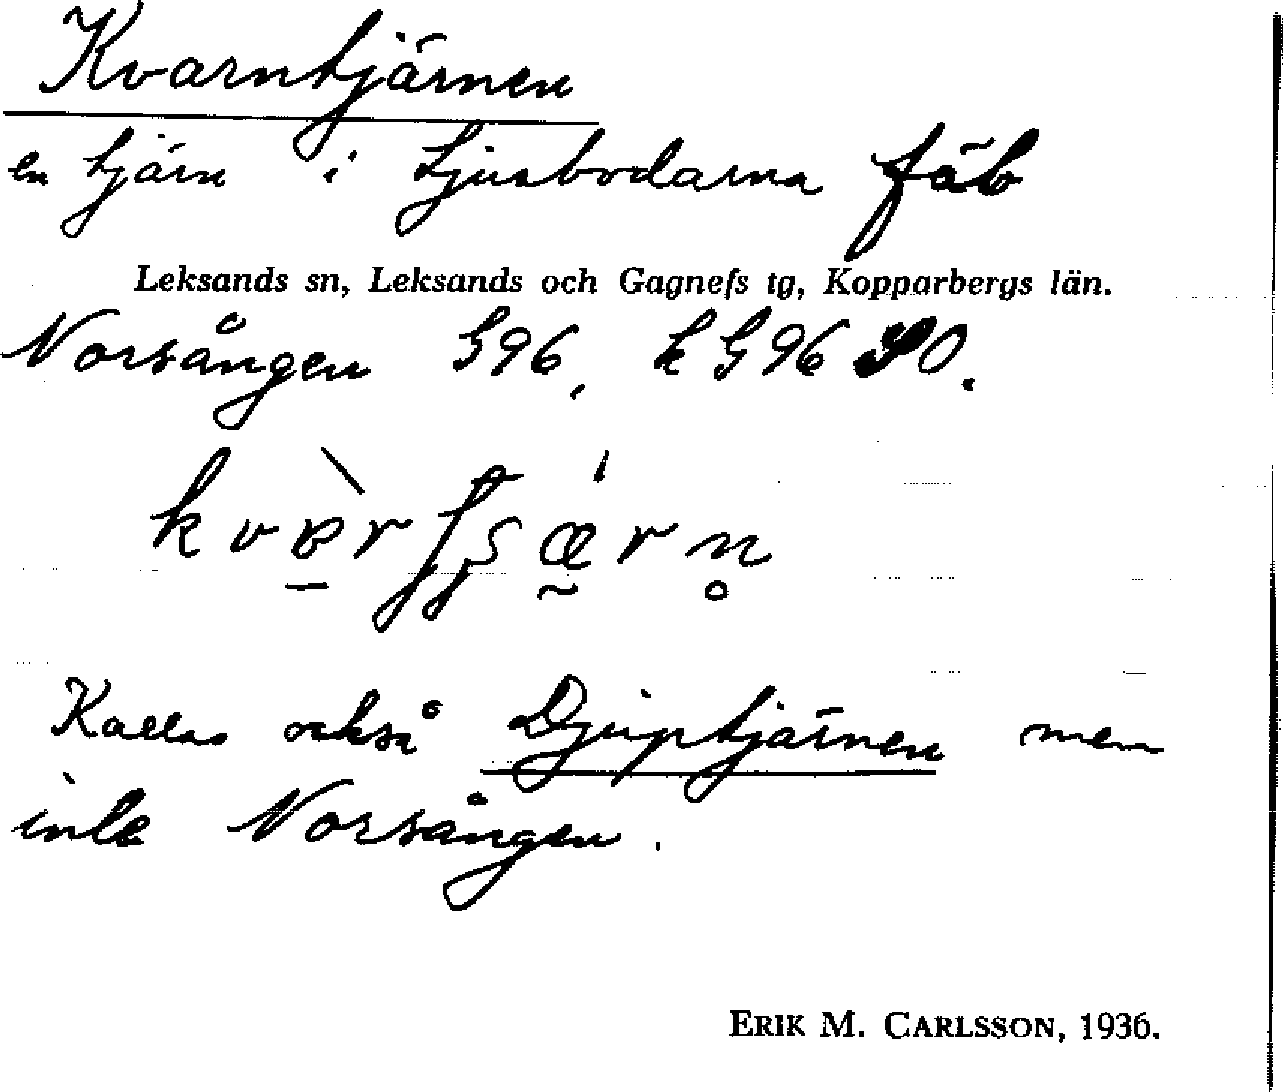 Kvarntjärnen
en tjärn i Ljusbodarna fäb
Leksands sn, Leksands och Gagnefs tg, Kopparbergs län.
Norsången G96, k G96 SO.
Kallas också Djuptjärnen men
inte Norsången.
ERIK M. CARLSSON, 1936.